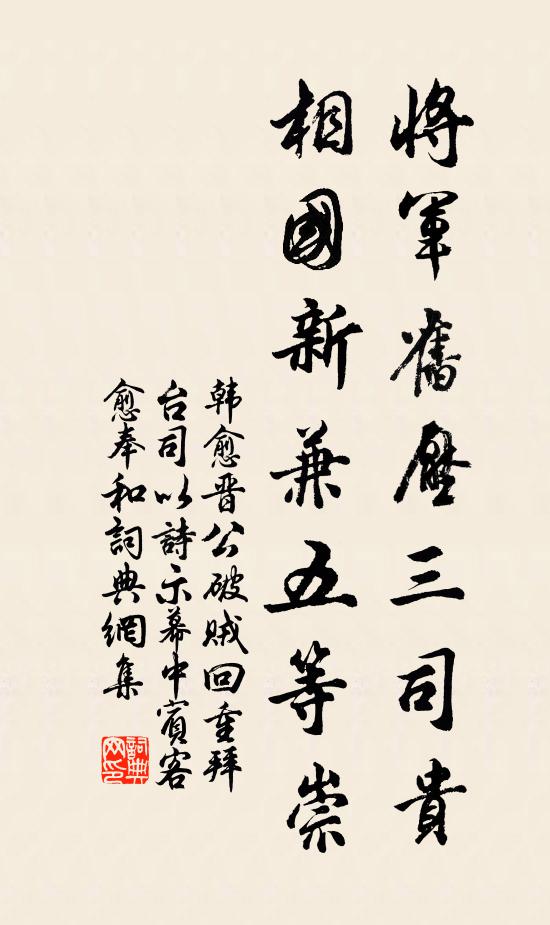 將軍舊壓三司貴
相國新兼五等崇
韩愈晋公破贼回重拜
台司以詩示幕中賓客
愈奉和詞典網集
詞典网印